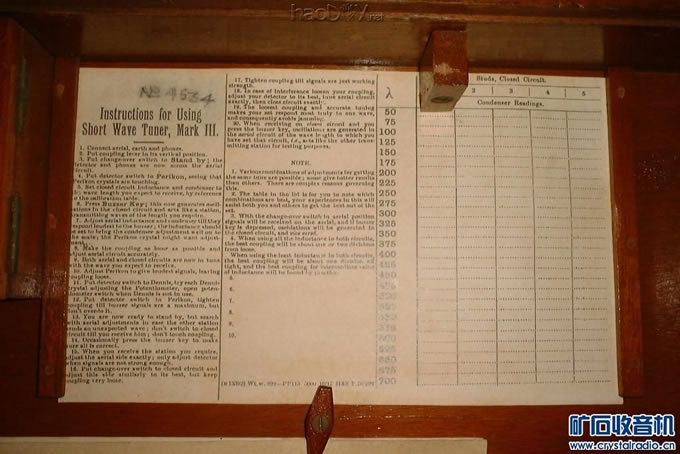 haoDIY.net
No 4634
Instructions for Using
Short Wave Tuner, Mark III.
1. Connect aerial, earth and phones.
2. Put coupling lever in its vertical position.
3. Put change-over switch to Stand by; the
detector and phones are now across the aerial
circuit.
4. Put detector switch to Perikon, seeing that
Perikon crystals are touching.
5. Set closed circuit inductance and condenser to
the wave length you expect to receive, by reference
to the calibration table.
6. Press Buzzer Key; this now generates oscil-
lations in the closed circuit and acts like a station,
transmitting waves of the length you require.
7. Adjust aerial inductance and condenser till they
respond loudest to the buzzer; the inductance should
be set to bring the condenser adjustment well on to
the scale; the Perikon crystal might want adjust-
8. Make the coupling as loose as possible and
adjust aerial circuit accurately.
9. Both aerial and closed circuits are now in tune
with the wave you expect to receive.
10. Adjust Perikon to give loudest signals, leaving
coupling loose.
11. Put detector switch to Dennis, try each Dennis
crystal adjusting the Potentiometer, open poten-
tiometer switch when Dennis is not in use.
12. Put detector switch to Perikon, tighten
coupling till buzzer signals are a maximum, but
don't exceed it.
13. You are now ready to stand by, but search
with aerial adjustments in case the other station
sends an unexpected wave; don't switch to closed
circuit till you receive him; don't touch coupling.
14. Occasionally press the buzzer key to make
sure all is correct.
15. When you receive the station you require,
adjust the aerial side exactly; only adjust detector
when signals are not strong enough.
16. Put change-over switch to closed circuit and
adjust this side similarly to its best, but keep
coupling very loose.
17. Tighten coupling till signals are just working
strength.
18. In case of interference loosen your coupling,
adjust your detector to its best, tune aerial circuit
exactly, then close circuit exactly.
19. The loosest coupling and accurate tuning
makes your set respond most truly to one wave,
and consequently avoids jamming.
20. When receiving on closed circuit and you
press the buzzer key, oscillations are generated in
the aerial circuit of the wave length to which you
have set that circuit, i.e., acts like the other trans-
mitting station for testing purposes.
NOTE.
1. Various combinations of adjustments for getting
the same tune are possible; some give better results
then others. There are complex reasons governing
this.
2. The table in the lid is for you to note which
combinations are best, your experience in this will
assist both you and others to get the best out of the
set.
3. With the change-over switch in aerial position
signals will be received on the aerial, and if buzzer
key is depressed, oscillations will be generated in
the closed circuit, and vice versâ.
4. When using all the inductance in both circuits,
the best coupling will be about one or two divisions
from loose.
When using the least inductance in both circuits,
the best coupling will be about one division off
tight, and the best coupling for intermediate value
of inductance will be found by practice.
5.
6.
7.
8.
9.
10.
λ
50
75
100
125
150
175
200
225
250
275
300
325
350
375
400
425
450
475
500
525
550
575
600
625
650
675
700
Studs, Closed Circuit.
2 3 4 5
Condenser Readings.
矿石收音机
www.crystalradio.cn